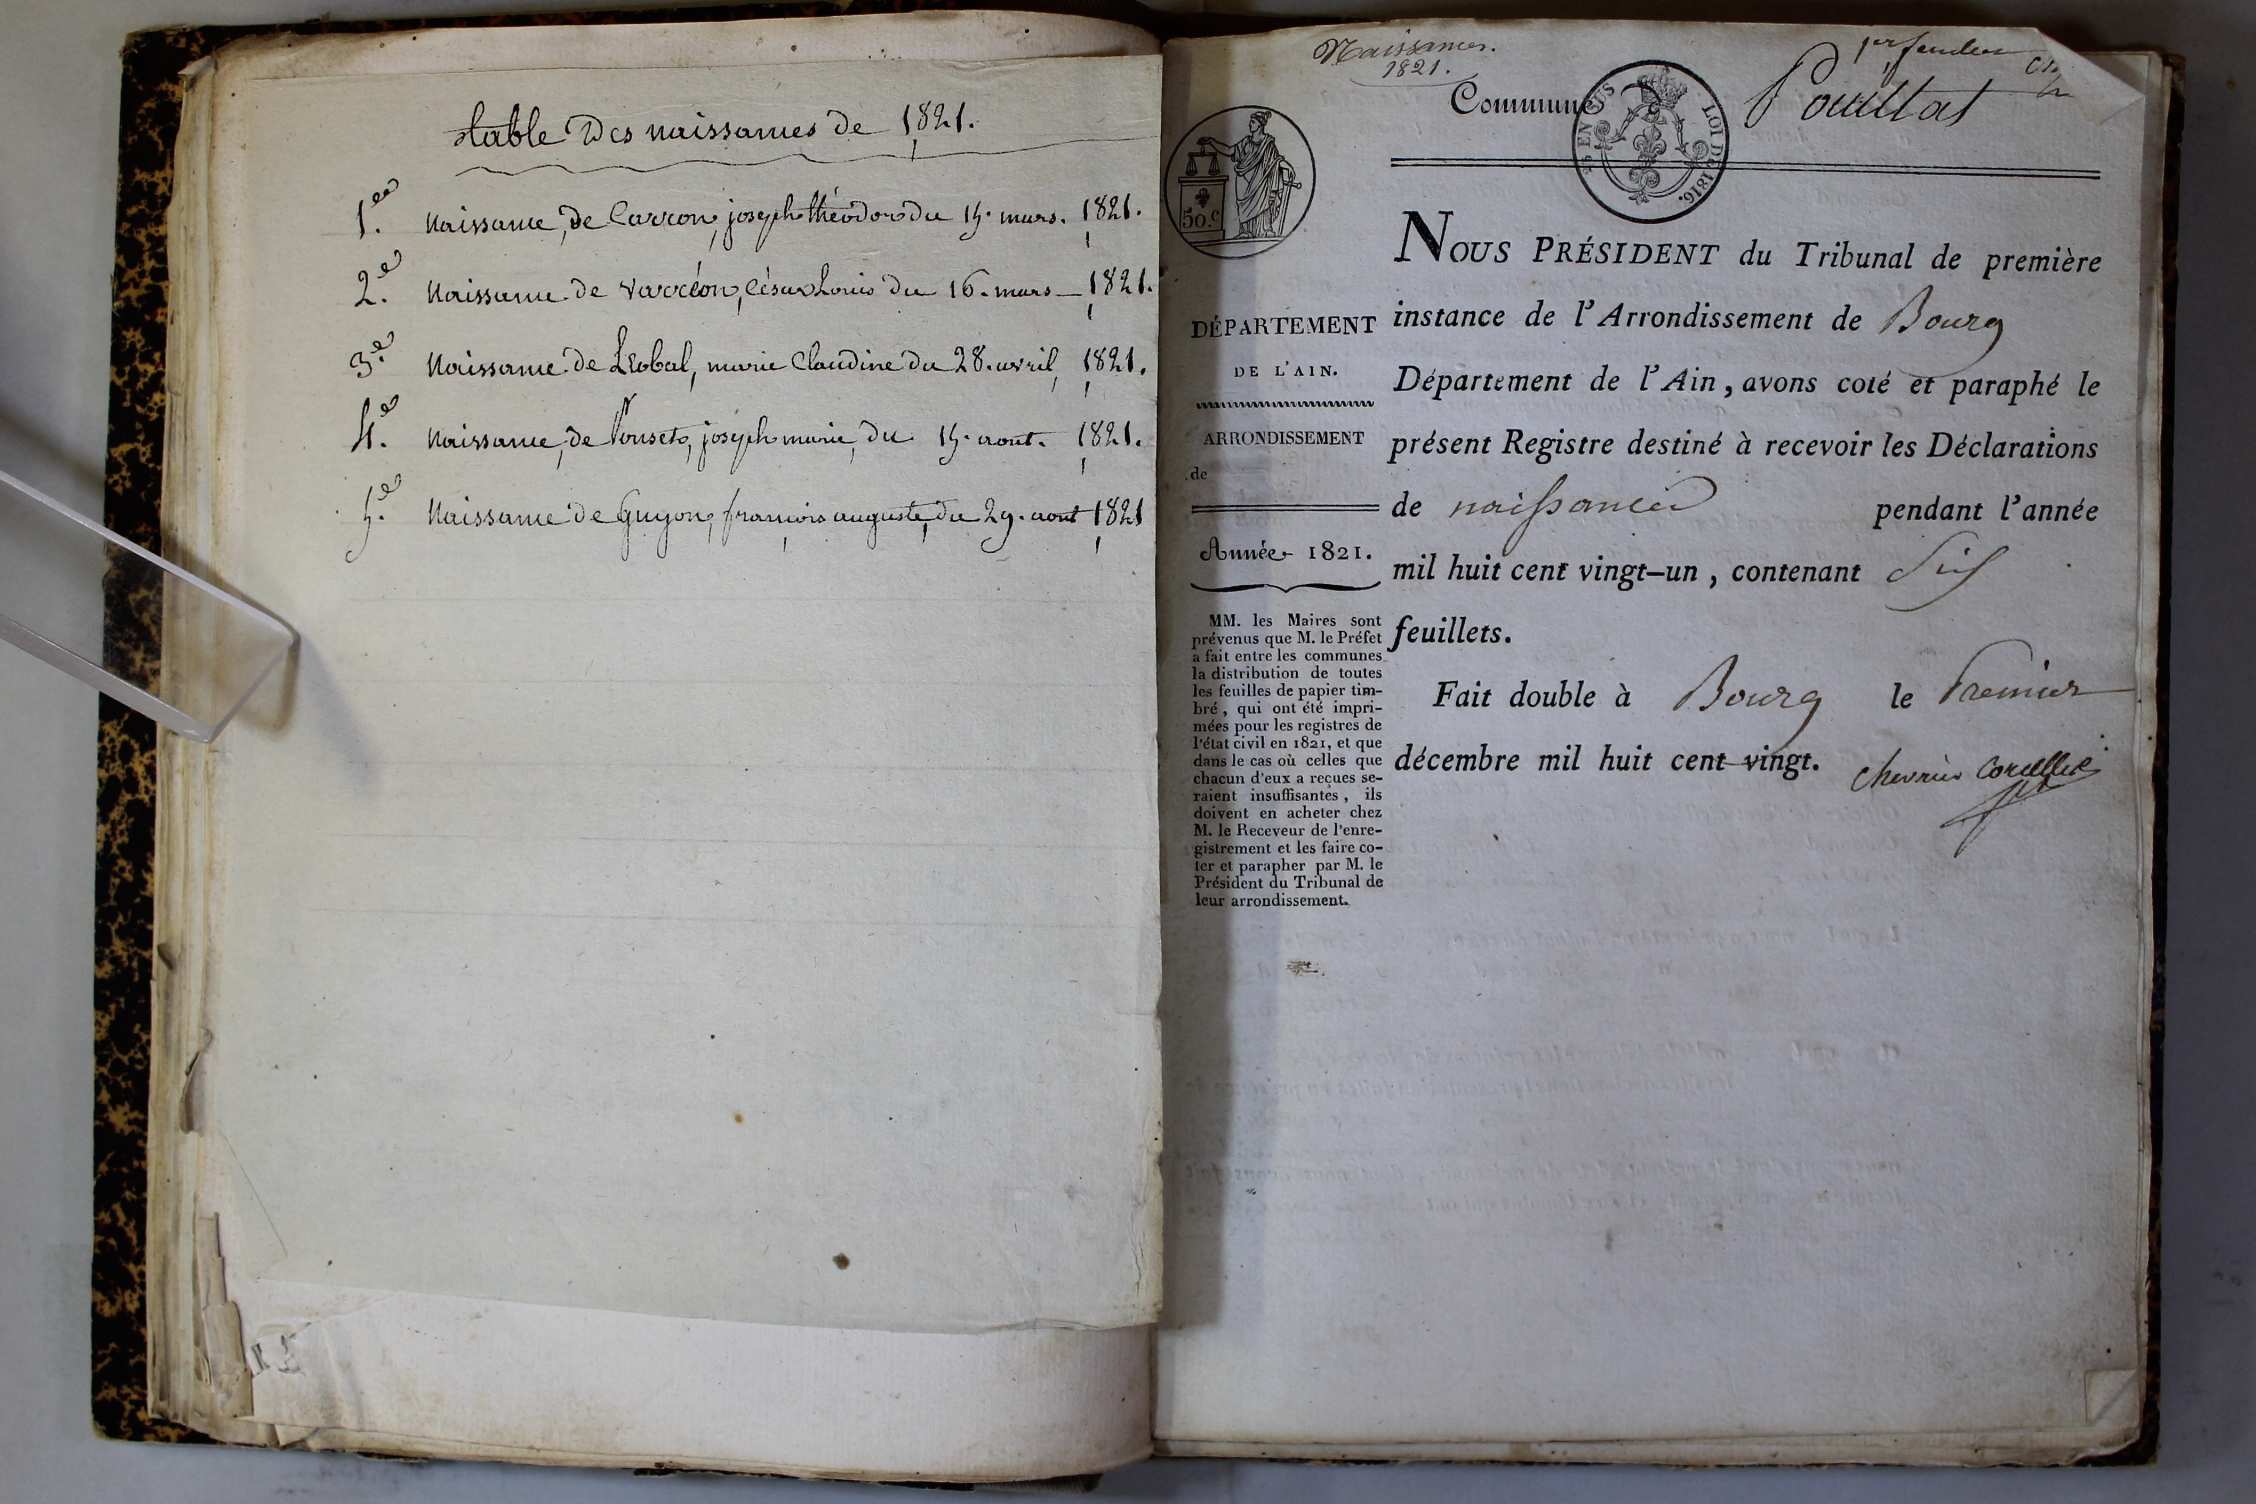 table des naissances de 1821.
1.ere naissance, de Carron, joseph théodore du 15. mars. 1821.
2.e naissance de varréon, César Louis du 16. mars – 1821.
3.e naissance de Léobal, marie Claudine du 28. avril, 1821.
4.e naissance, de Ponset, joseph marie, du 15. aout. 1821.
5.e Naissance de Guyon, françois auguste, du 29. aout 1821
Naissances.
1821.
1er feuillet
Commune
Pouillat
EN SUS
LOI DE 1816.
50.c
DÉPARTEMENT
DE L'AIN.
ARRONDISSEMENT
de
Année 1821.
MM. les Maires sont
prévenus que M. le Préfet
a fait entre les communes
la distribution de toutes
les feuilles de papier tim-
bré, qui ont été impri-
mées pour les registres de
l'état civil en 1821, et que
dans le cas où celles que
chacun d'eux a reçues se-
raient insuffisantes, ils
doivent en acheter chez
M. le Receveur de l'enre-
gistrement et les faire co-
ter et parapher par M. le
Président du Tribunal de
leur arrondissement.
NOUS PRÉSIDENT du Tribunal de première
instance de l'Arrondissement de Bourg
Département de l'Ain, avons coté et paraphé le
présent Registre destiné à recevoir les Déclarations
de naissances pendant l'année
mil huit cent vingt-un, contenant Six
feuillets.
Fait double à Bourg le Premier
décembre mil huit cent vingt.
Chevrier Corcelles